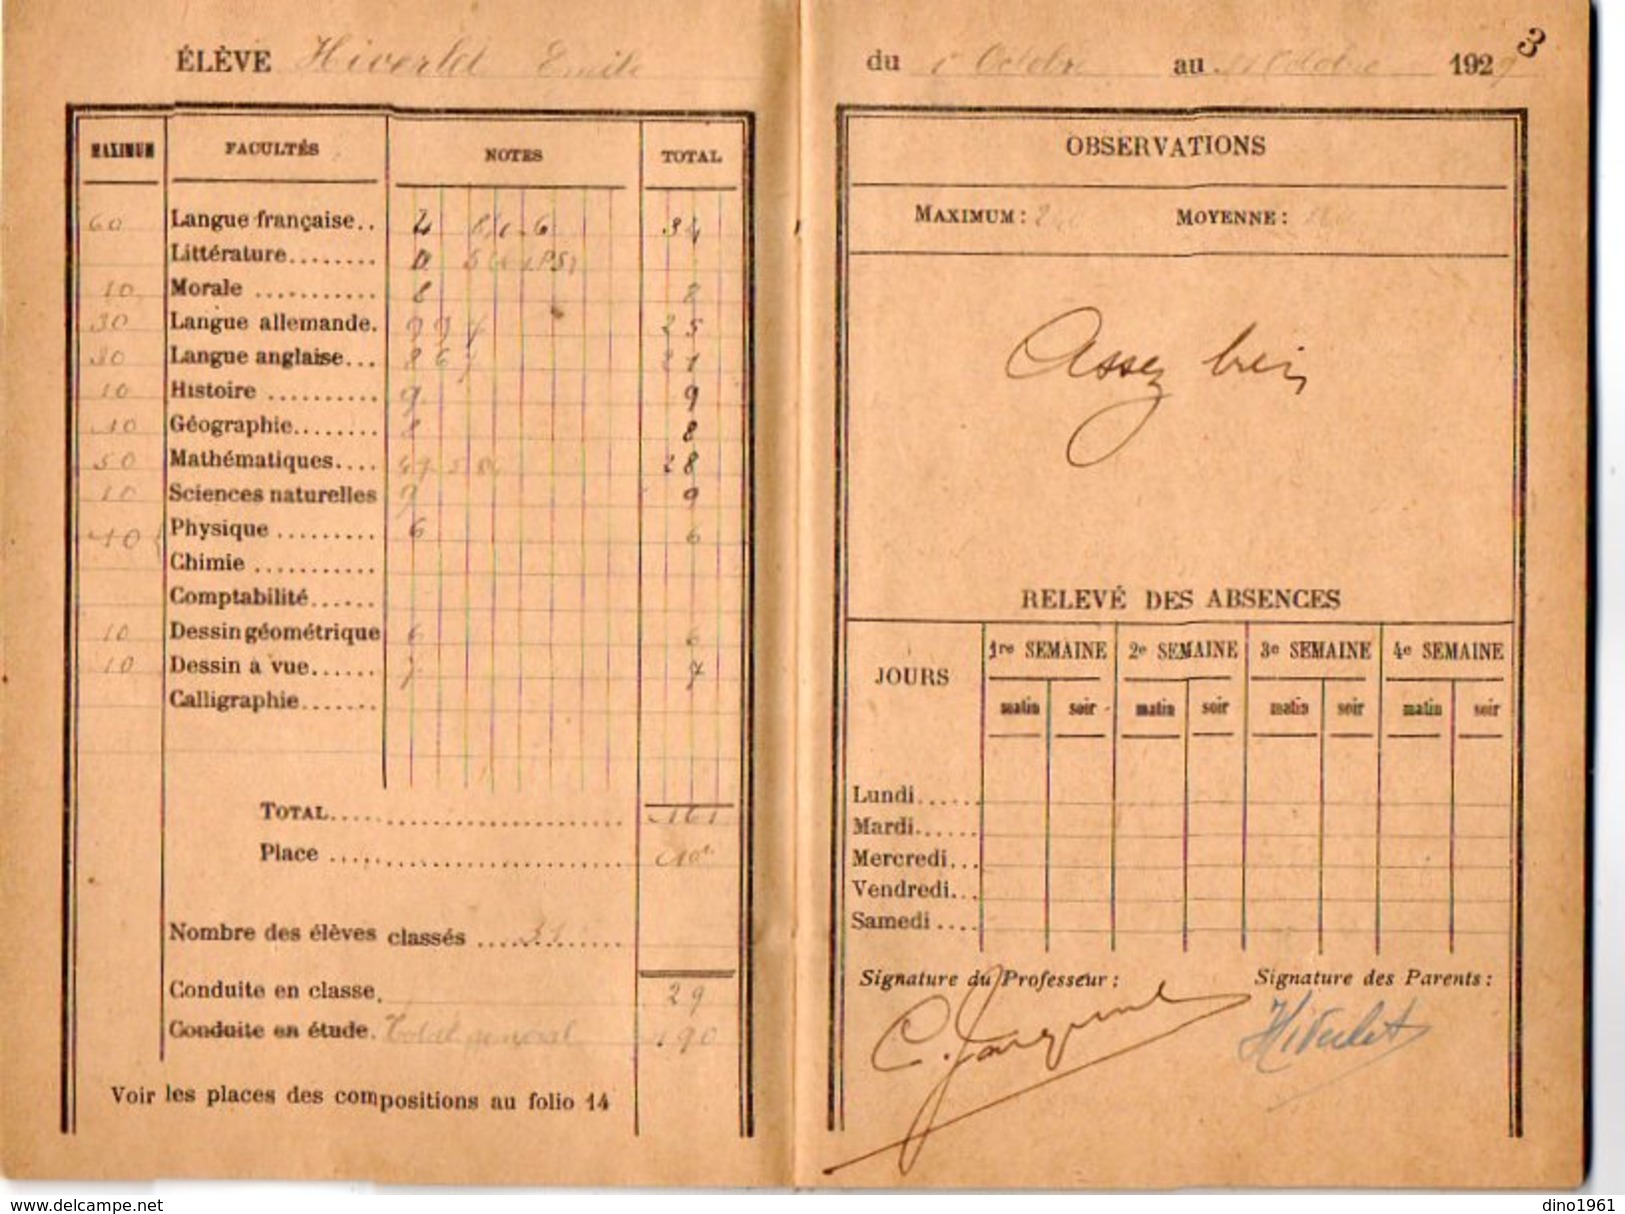 ÉLÈVE Emile
MAXIMUM FACULTÉS NOTES TOTAL
60 Langue française.. 34
Littérature........
10 Morale ........... 8 8
30 Langue allemande. 9 9 7 25
30 Langue anglaise... 8 6 7 21
10 Histoire .......... 9 9
10 Géographie........ 8 8
50 Mathématiques.... 28
10 Sciences naturelles 9 9
10 Physique ......... 6 6
Chimie ...........
Comptabilité......
10 Dessin géométrique 6 6
10 Dessin à vue...... 7 7
Calligraphie.......
TOTAL.............................. 161
Place ..............................
Nombre des élèves classés .... 31
Conduite en classe. 29
Conduite en étude. Total général 190
Voir les places des compositions au folio 14
3
du Octobre au Octobre 1929
OBSERVATIONS
MAXIMUM: MOYENNE:
Assez bien
RELEVÉ DES ABSENCES
JOURS 1re SEMAINE 2e SEMAINE 3e SEMAINE 4e SEMAINE
matin soir matin soir matin soir matin soir
Lundi......
Mardi......
Mercredi...
Vendredi...
Samedi ....
Signature du Professeur : Signature des Parents :
delcampe.net
dino1961